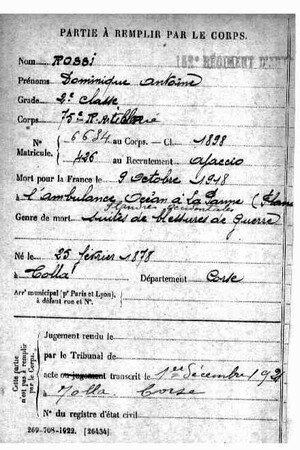 PARTIE À REMPLIR PAR LE CORPS.
152e RÉGIMENT D'
Nom ROSSI
Prénoms Dominique Antoine
Grade 2e classe
Corps 75e R. Artillerie
N° Matricule. 6634 au Corps. — Cl. 1898
426 au Recrutement Ajaccio
Mort pour la France le 9 Octobre 1918
à l'ambulance Océan à La Panne
Flandre occidentale
Genre de mort Suites de blessures de Guerre
Né le 25 février 1878
à Tolla Département Corse
Arrt municipal (pr Paris et Lyon), à défaut rue et N°.
Cette partie n'est pas à remplir par le Corps.
Jugement rendu le
par le Tribunal de
acte ou jugement transcrit le 1er décembre 1921
à Tolla Corse
N° du registre d'état civil
269-708-1922. [26434]